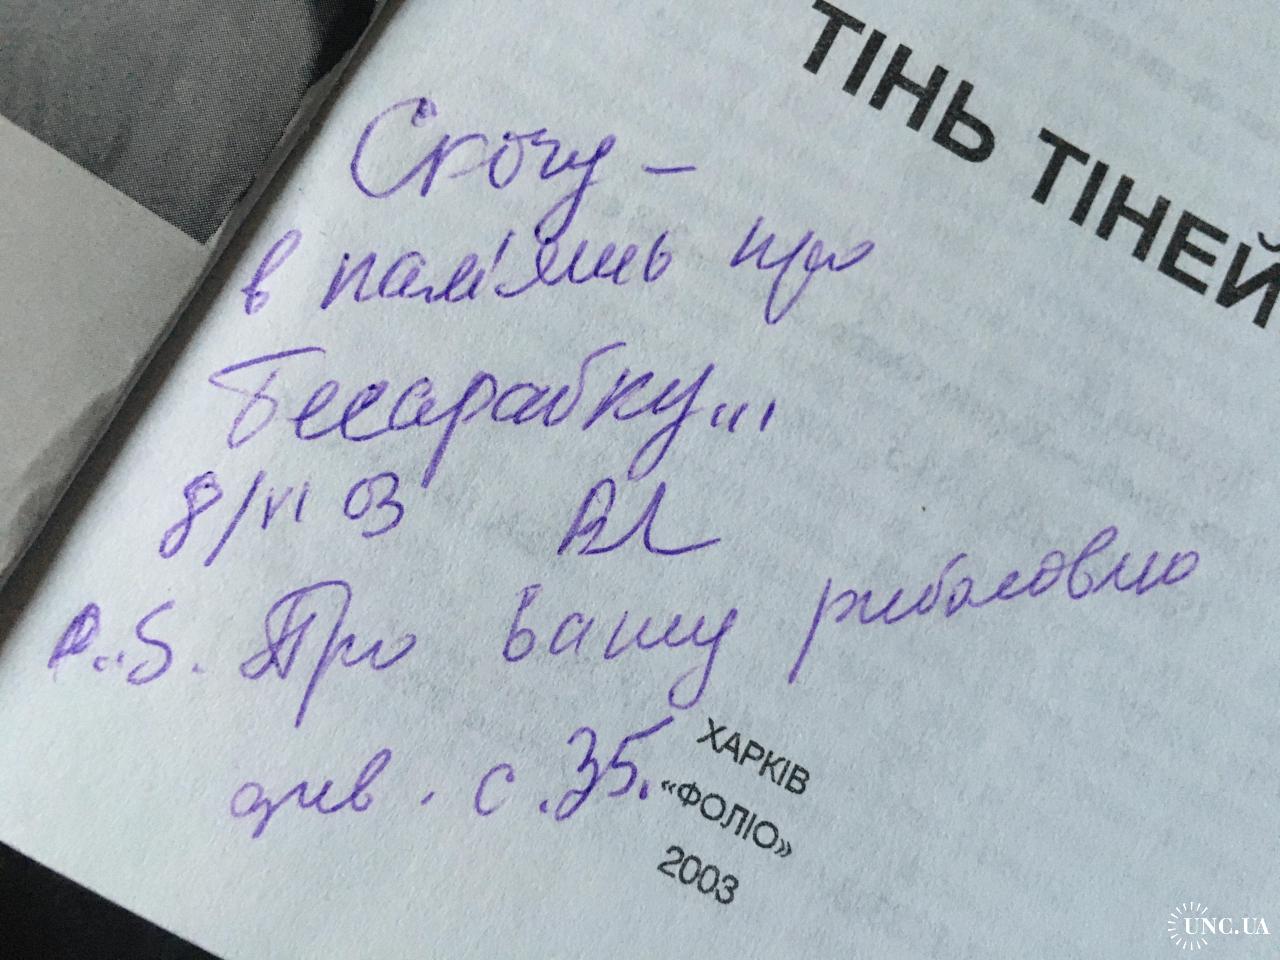 ТІНЬ ТІНЕЙ
Скочу –
в пам'ять про
Бесарабку...
8/VI 03
P.S. Про вашу риболовлю
див. с. 35.
ХАРКІВ
«ФОЛІО»
2003
UNC.UA